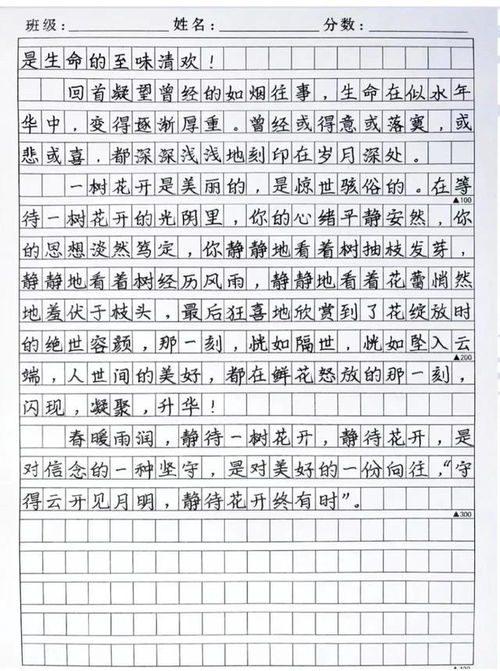 班级: 姓名: 分数:
是生命的至味清欢！
回首凝望曾经的如烟往事，生命在似水年
华中，变得逐渐厚重。曾经或得意或落寞，或
悲或喜，都深深浅浅地刻印在岁月深处。
一树花开是美丽的，是惊世骇俗的。在等
▲100
待一树花开的光阴里，你的心绪平静安然，你
的思想淡然笃定，你静静地看着树抽枝发芽，
静静地看着树经历风雨，静静地看着花蕾悄然
地羞伏于枝头，最后狂喜地欣赏到了花绽放时
的绝世容颜，那一刻，恍如隔世，恍如坠入云
▲200
端，人世间的美好，都在鲜花怒放的那一刻，
闪现，凝聚，升华！
春暖雨润，静待一树花开，静待花开，是
对信念的一种坚守，是对美好的一份向往，“守
得云开见月明，静待花开终有时”。
▲300